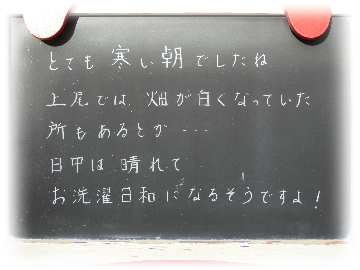 とても寒い朝でしたね
上尾では 畑が白くなっていた
所もあるとか・・・
日中は 晴れて
お洗濯日和になるそうですよ!